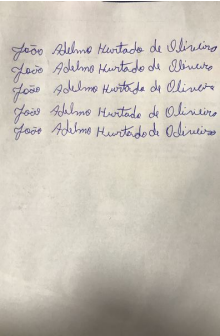 João Adelmo Hurtado de Oliveira
João Adelmo Hurtado de Oliveira
João Adelmo Hurtado de Oliveira
João Adelmo Hurtado de Oliveira
João Adelmo Hurtado de Oliveira